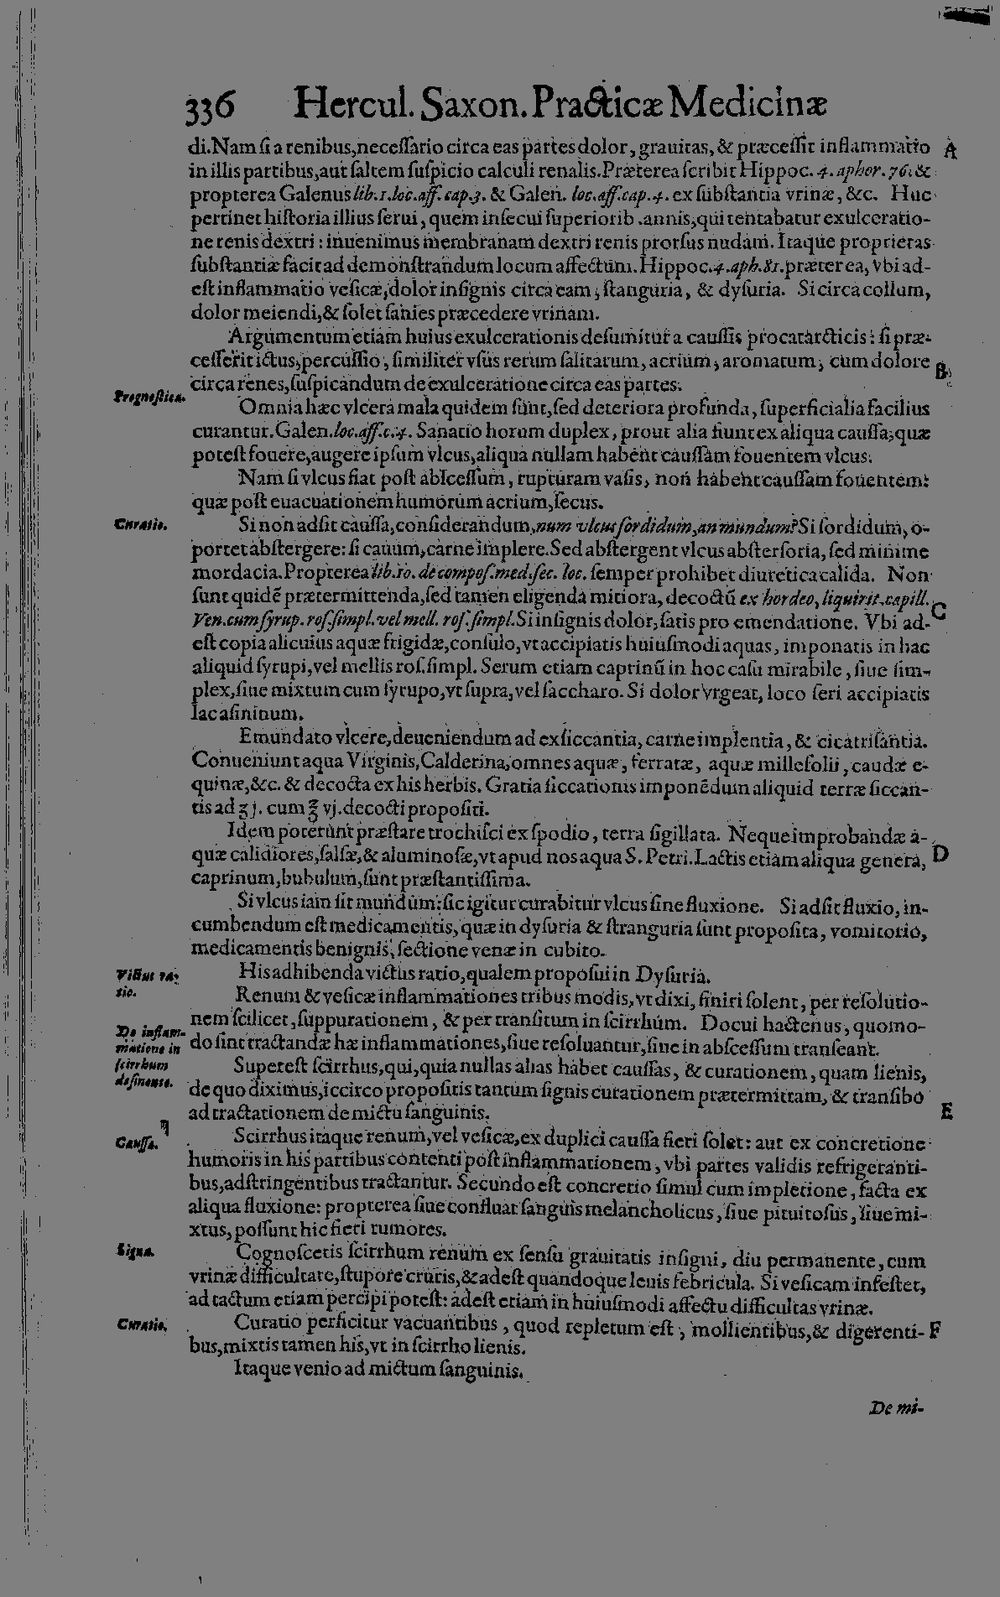 336 Hercul. Saxon. Practicæ Medicinæ
di. Nam ſi a renibus, neceſſario circa eas partes dolor, grauitas, & præceſſit inflammatio A
in illis partibus, aut ſaltem ſuſpicio calculi renalis. Præterea ſcribit Hippoc. 4. aphor. 76. &
propterea Galenus lib. 1. loc. aff. cap. 3. & Galen. loc. aff. cap. 4. ex ſubſtantia vrinæ, &c. Huc
pertinet hiſtoria illius ſerui, quem inſecui ſuperiorib. annis, qui tentabatur exulceratio-
ne renis dextri: inuenimus membranam dextri renis prorſus nudam. Itaque proprietas
ſubſtantiæ facit ad demonſtrandum locum affectum. Hippoc. 4. aph. 81. præterea, vbi ad-
eſt inflammatio veſicæ, dolor inſignis circa eam, ſtanguria, & dyſuria. Si circa collum,
dolor meiendi, & ſolet ſanies præcedere vrinam.
Argumentum etiam huius exulcerationis deſumitur a cauſſis procatarcticis: ſi præ-
ceſſerit ictus, percuſſio, ſimiliter vſus rerum ſalitarum, acrium, aromatum, cum dolore B
circa renes, ſuſpicandum de exulceratione circa eas partes.
Prognoſtica.
Omnia hæc vlcera mala quidem ſunt, ſed deteriora profunda, ſuperficialia facilius
curantur. Galen. loc. aff. c. 4. Sanatio horum duplex, prout alia fiunt ex aliqua cauſſa, quæ
poteſt fouere, augere ipſum vlcus, aliqua nullam habent cauſſam fouentem vlcus.
Nam ſi vlcus fiat poſt abſceſſum, rupturam vaſis, non habent cauſſam fouentem:
quæ poſt euacuationem humorum acrium, ſecus.
Curatio.
Si non adſit cauſſa, conſiderandum, num vlcus ſordidum, an mundum? Si ſordidum, o-
portet abſtergere: ſi cauum, carne implere. Sed abſtergent vlcus abſterſoria, ſed minime
mordacia. Propterea lib. 10. de compoſ. med. ſec. loc. ſemper prohibet diuretica calida. Non
ſunt quidẽ prætermittenda, ſed tamen eligenda mitiora, decoctũ ex hordeo, liquirit. capill. C
Ven. cum ſyrup. roſ. ſimpl. vel mell. roſ. ſimpl. Si inſignis dolor, ſatis pro emendatione. Vbi ad-
eſt copia alicuius aquæ frigidæ, conſulo, vt accipiatis huiuſmodi aquas, imponatis in hac
aliquid ſyrupi, vel mellis roſ. ſimpl. Serum etiam caprinũ in hoc caſu mirabile, ſiue ſim-
plex, ſiue mixtum cum ſyrupo, vt ſupra, vel ſaccharo. Si dolor vrgeat, loco ſeri accipiatis
lac aſininum.
Emundato vlcere, deueniendum ad exſiccantia, carne implentia, & cicatriſantia.
Conueniunt aqua Virginis, Calderina, omnes aquæ, ferratæ, aquæ millefolii, caudæ e-
quinæ, &c. & decocta ex his herbis. Gratia ſiccationis imponẽdum aliquid terræ ſiccan-
tis ad ʒ j. cum ℥ vj. decocti propoſiti.
Idem poterunt præſtare trochiſci ex ſpodio, terra ſigillata. Neque improbandæ a-
quæ calidiores, ſalſæ, & aluminoſæ, vt apud nos aqua S. Petri. Lactis etiam aliqua genera, D
caprinum, bubulum, ſunt præſtantiſſima.
Si vlcus iam ſit mundum: ſic igitur curabitur vlcus ſine fluxione. Si adſit fluxio, in-
cumbendum eſt medicamentis, quæ in dyſuria & ſtranguria ſunt propoſita, vomitorio,
medicamentis benignis, ſectione venæ in cubito.
Victus ra-
tio.
His adhibenda victus ratio, qualem propoſui in Dyſuria.
Renum & veſicæ inflammationes tribus modis, vt dixi, finiri ſolent, per reſolutio-
nem ſcilicet, ſuppurationem, & per tranſitum in ſcirrhum. Docui hactenus, quomo-
do ſint tractandæ hæ inflammationes, ſiue reſoluantur, ſiue in abſceſſum tranſeant.
De inflam-
matione in
ſcirrhum
deſinente.
Supereſt ſcirrhus, qui, quia nullas alias habet cauſſas, & curationem, quam lienis,
de quo diximus, iccirco propoſitis tantum ſignis curationem prætermittam, & tranſibo
ad tractationem de mictu ſanguinis. E
Cauſſa.
Scirrhus itaque renum, vel veſicæ, ex duplici cauſſa fieri ſolet: aut ex concretione
humoris in his partibus contenti poſt inflammationem, vbi partes validis refrigeranti-
bus, adſtringentibus tractantur. Secundo eſt concretio ſimul cum impletione, facta ex
aliqua fluxione: propterea ſiue confluat ſanguis melancholicus, ſiue pituitoſus, ſiue mi-
xtus, poſſunt hic fieri tumores.
Signa.
Cognoſcetis ſcirrhum renum ex ſenſu grauitatis inſigni, diu permanente, cum
vrinæ difficultate, ſtupore cruris, & adeſt quandoque leuis febricula. Si veſicam infeſtet,
ad tactum etiam percipi poteſt: adeſt etiam in huiuſmodi affectu difficultas vrinæ.
Curatio.
Curatio perficitur vacuantibus, quod repletum eſt, mollientibus, & digerenti- F
bus, mixtis tamen his, vt in ſcirrho lienis.
Itaque venio ad mictum ſanguinis.
De mi-